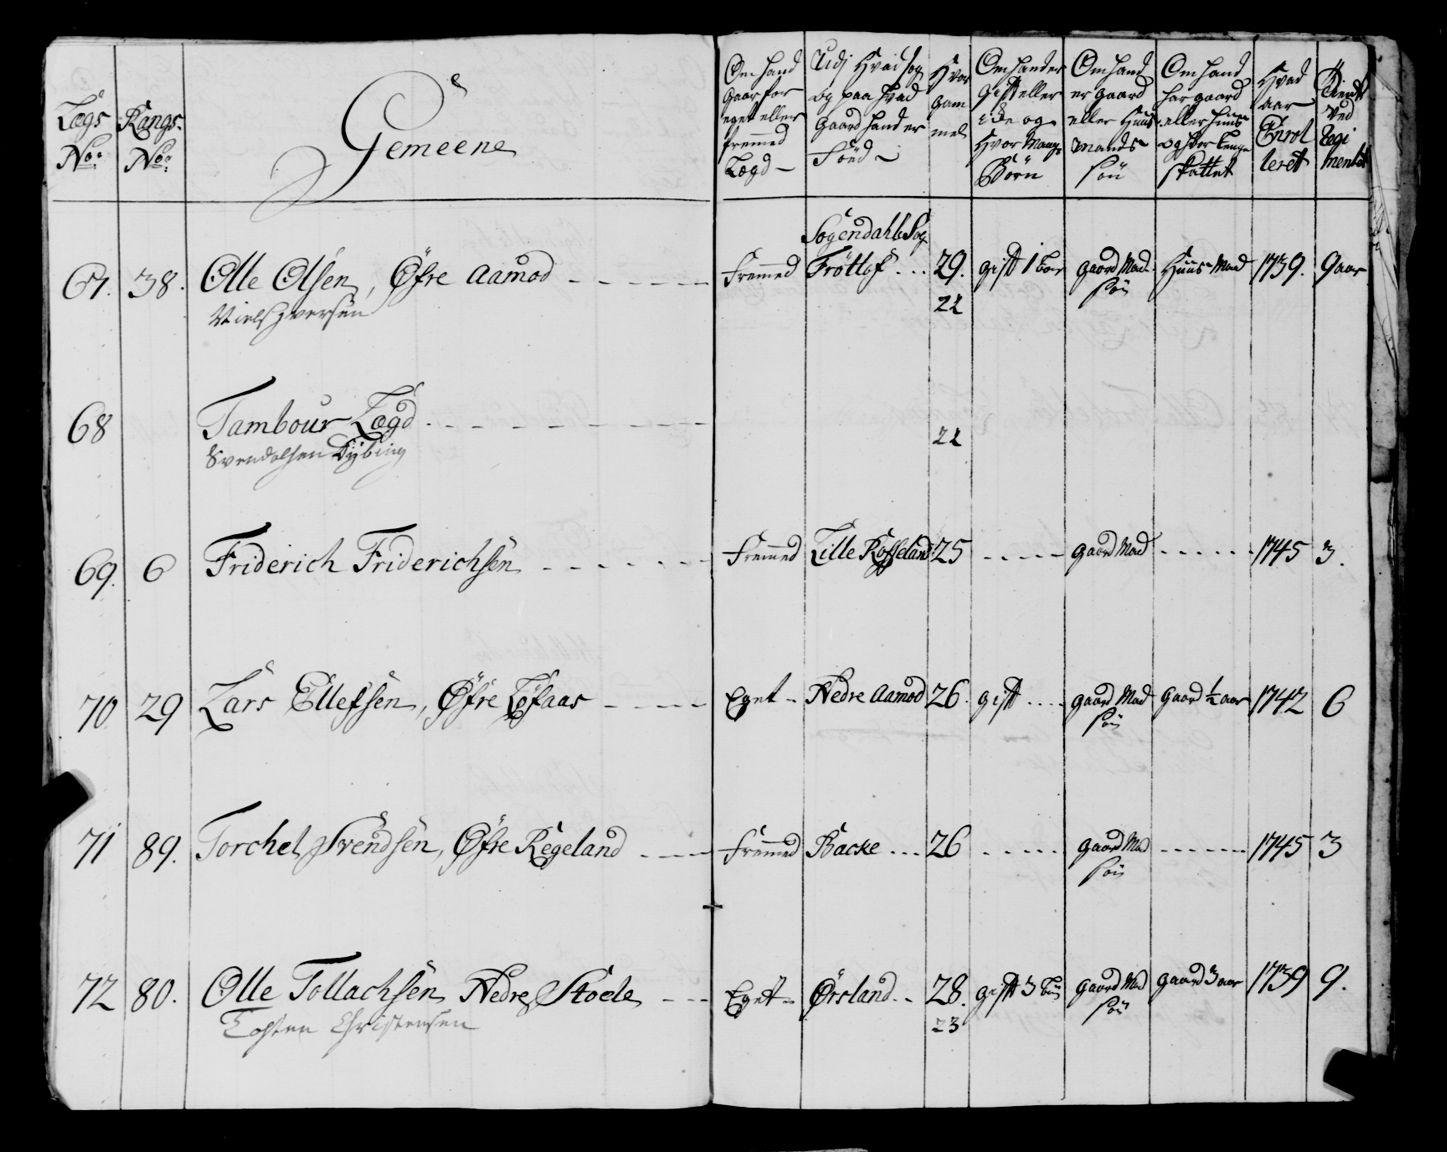 Lægs No:
Rangs No:
Gemeene
Om hand gaar for eget eller fremmed Lægd
Udi Hvad Sogn og paa hvad gaard hand er Föed
Hvor gammel
Om hand er gift eller ide og Hvor Mange Börn
Om hand er gaard eller Huusmands Sön
Om hand har gaard eller Huus og Hvor Længe skattet
Hvad aar Enrolleret
Tient ved Regimentet
67. 38. Olle Olsen, Öfre Aamod Fremmed Sogendahls Sogn Fröitlof 29. gift 1 bar gaard Mad Sön Huus Mand 1739. 9 aar
Niels Iversen 22
68 Tambour Lægd
Svend Olsen Dÿbing 22
69. 6 Friderich Friderichsen Fremmed Lille Rosseland 25 gaard Mad 1745 3.
70 29 Lars Ellefsen, Öfre Lofaas Eget Nedre Aamod 26. gift gaard Mad Sön gaard ½ aar 1742 6
71 89. Torchel Svendsen, Öfre Regeland Fremmed Backe 26 gaard Mad Sön 1745 3
72 80. Olle Tollachsen, Nedre Stoele Eget Örsland 28. gift 3 bör gaard Mad Sön gaard 3 aar 1739 9.
Tosten Christensen 23